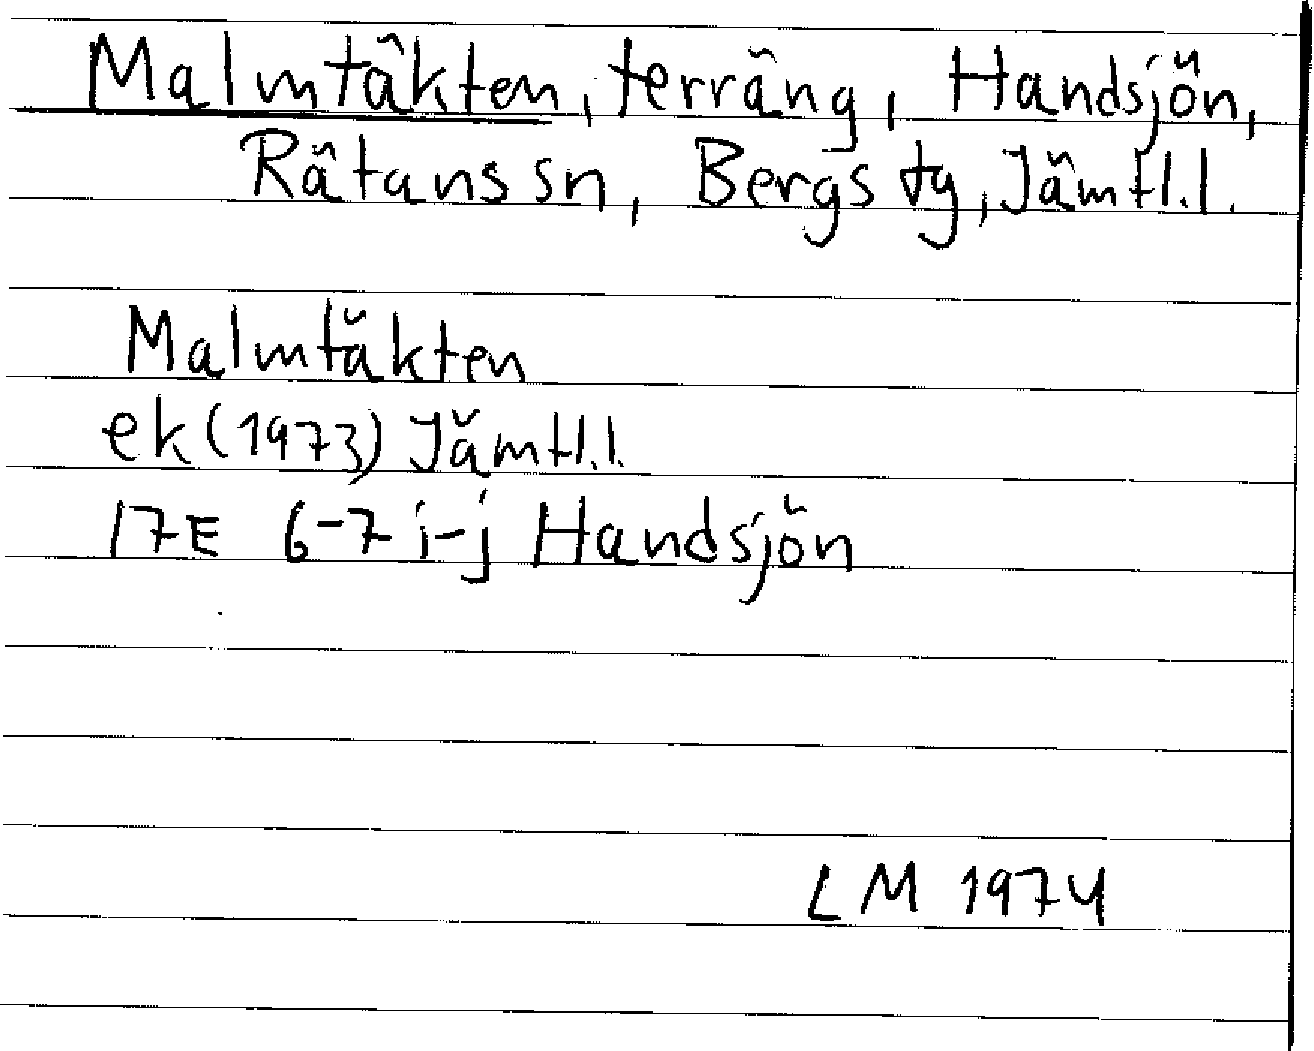 Malmtäkten, terräng, Handsjön,
Rätans sn, Bergs tg, Jämtl.l.
Malmtäkten
ek (1973) Jämtl.l.
17E 6-7 i-j Handsjön
LM 1974